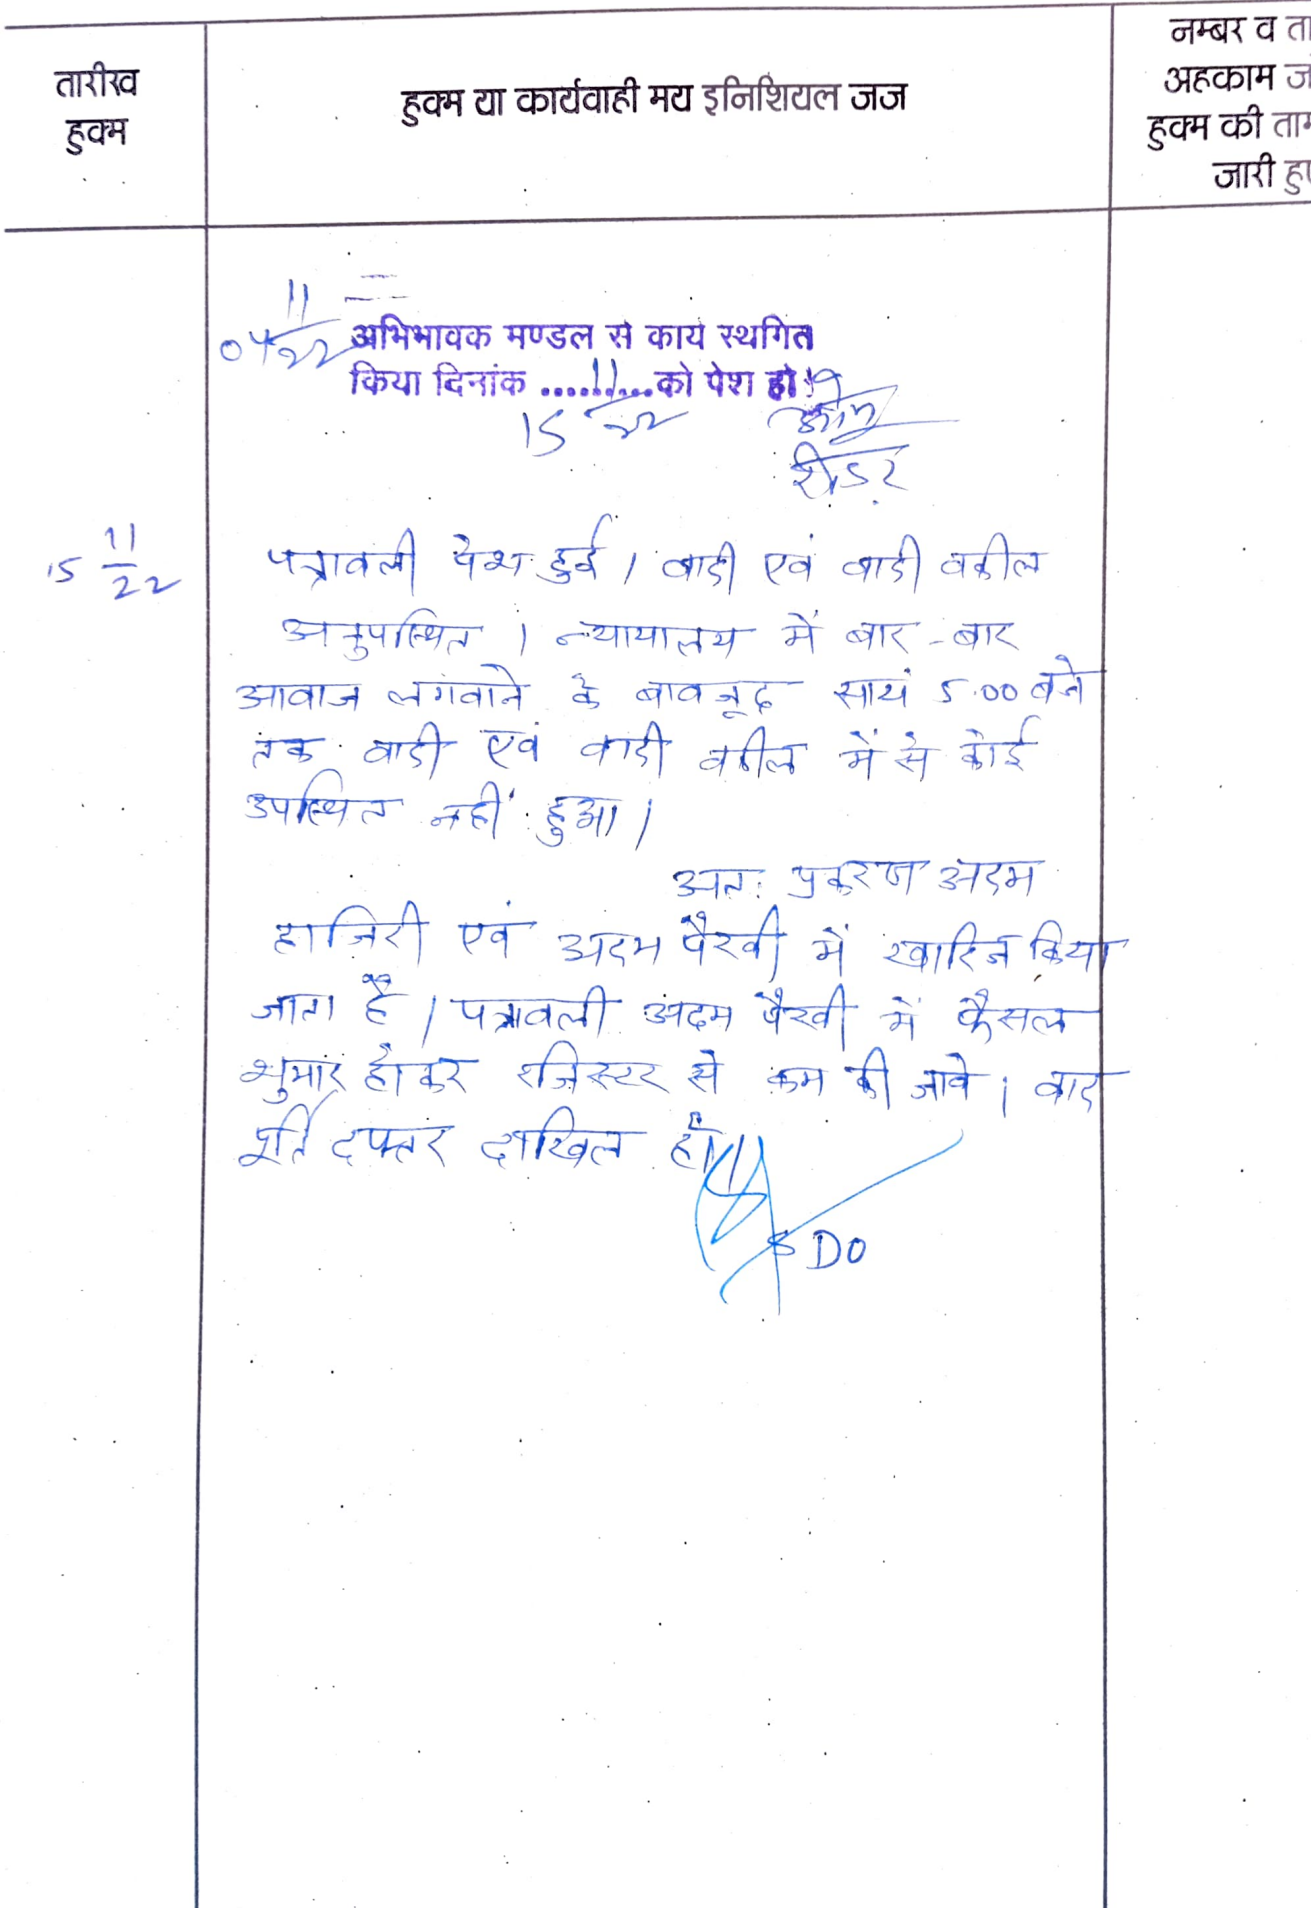 तारीख
हुक्म
हुक्म या कार्यवाही मय इनिशियल जज
नम्बर व ता
अहकाम ज
हुक्म की ताम
जारी हुए
04 11/22
अभिभावक मण्डल से कार्य स्थगित
किया दिनांक ....11....को पेश हो।
15 22
रीडर
15 11/22
पत्रावली पेश हुई। वादी एवं वादी वकील
अनुपस्थित। न्यायालय में बार-बार
आवाज लगवाने के बावजूद सायं 5.00 बजे
तक वादी एवं वादी वकील में से कोई
उपस्थित नहीं हुआ।
अतः प्रकरण अदम
हाजिरी एवं अदम पैरवी में खारिज किया
जाता है। पत्रावली अदम पैरवी में फैसल
शुमार होकर रजिस्टर से कम की जावे। बाद
पूर्ति दफ्तर दाखिल हो।
SDO